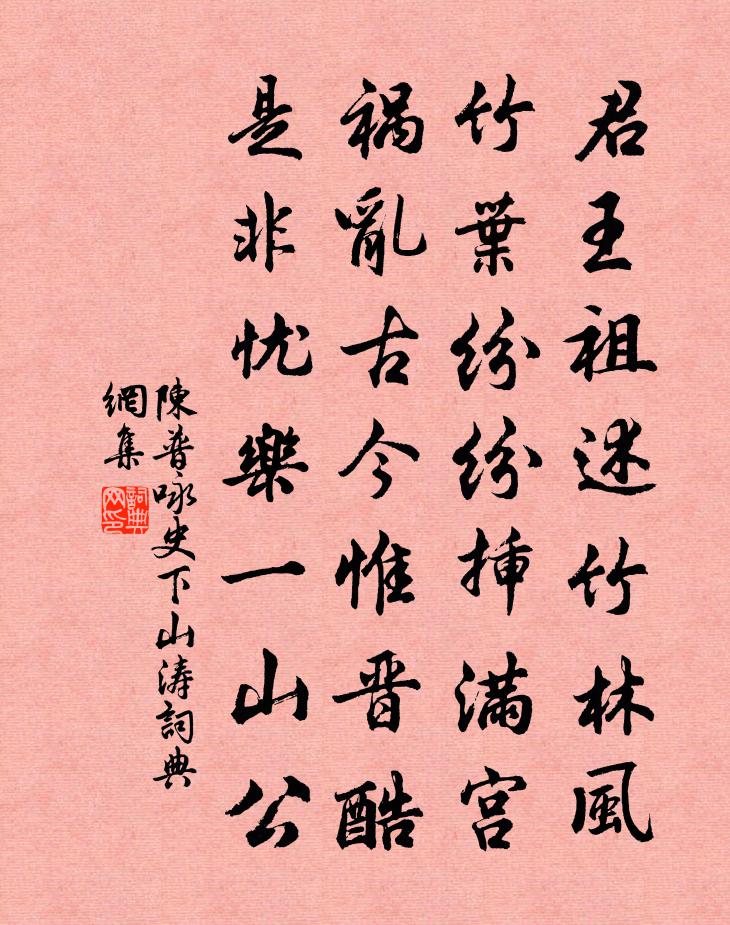 君王祖述竹林風
竹葉紛紛挿滿宮
禍亂古今惟晋酷
是非忧樂一山公
陳普咏史下山涛詞典
網集
詞典
网印